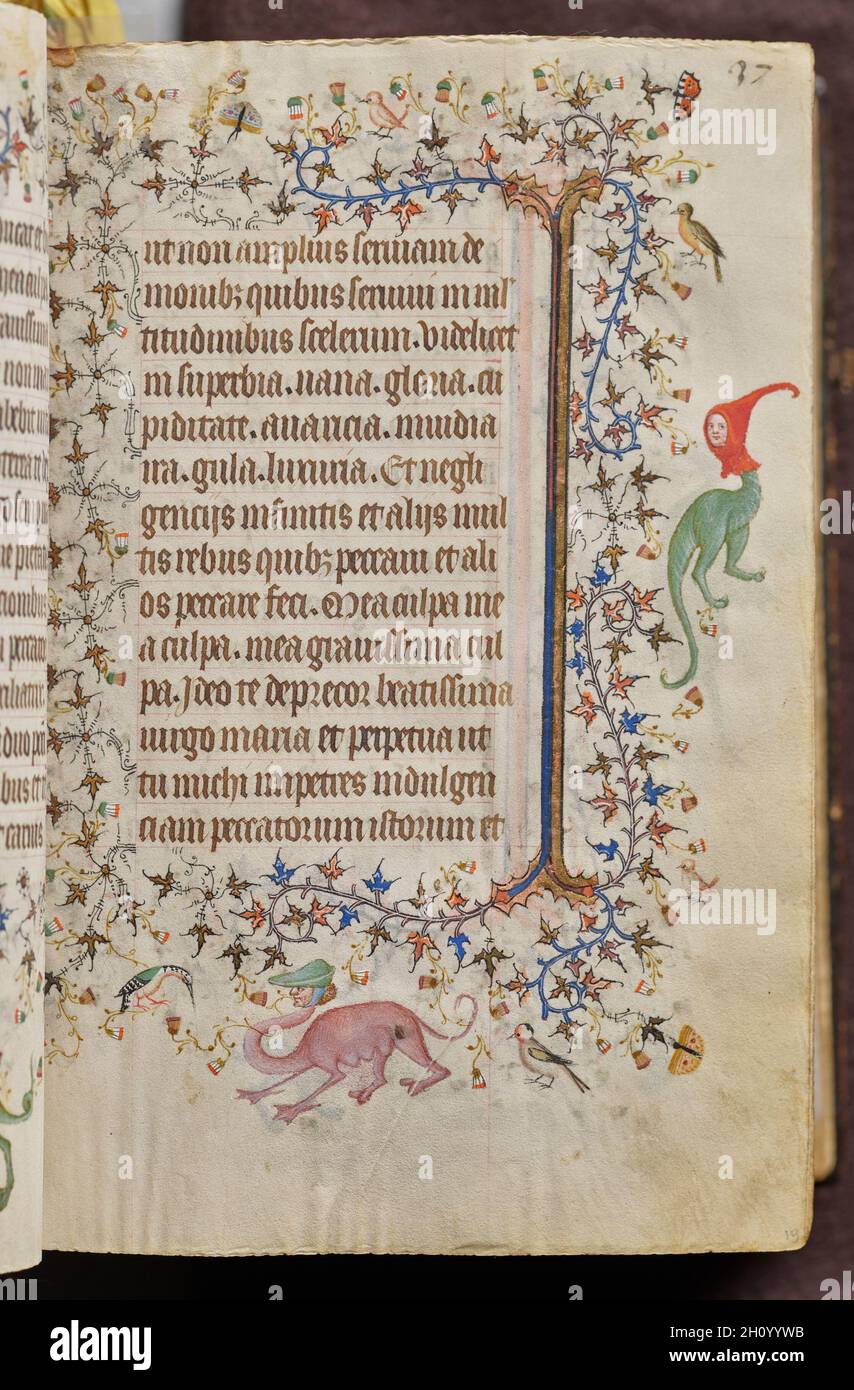 37
ut non amplius seruiam de
monibꝫ quibus seruiui in mul
titudinibus scelerum. Videlicet
in superbia. uana. gloria. cu
piditate. auaricia. inuidia
ira. gula. luxuria. Et negli
gencijs infinitis et alijs mul
tis rebus quibꝫ peccaui et ali
os peccare feci. Mea culpa me
a culpa. mea grauissima cul
pa. Ideo te deprecor beatissima
uirgo maria et perpetua ut
tu michi impetres indulgen
ciam peccatorum istorum et
19
alamy
Image ID: 2H0YYWB
www.alamy.com